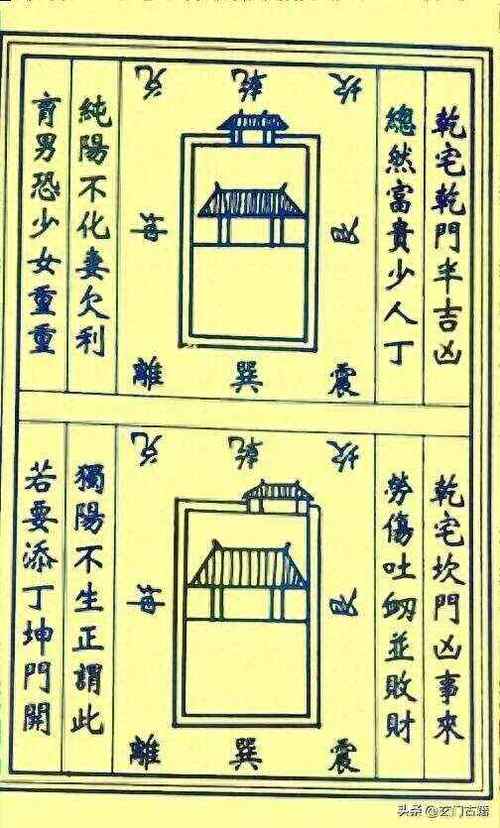 乾宅乾門半吉凶
總然富貴少人丁
坎 乾 兌
艮 坤
震 巽 離
純陽不化妻欠利
育男恐少女重重
乾宅坎門凶事來
勞傷吐衂並敗財
坎 乾 兌
艮 坤
震 巽 離
獨陽不生正謂此
若要添丁坤門開
头条 @玄门古籍